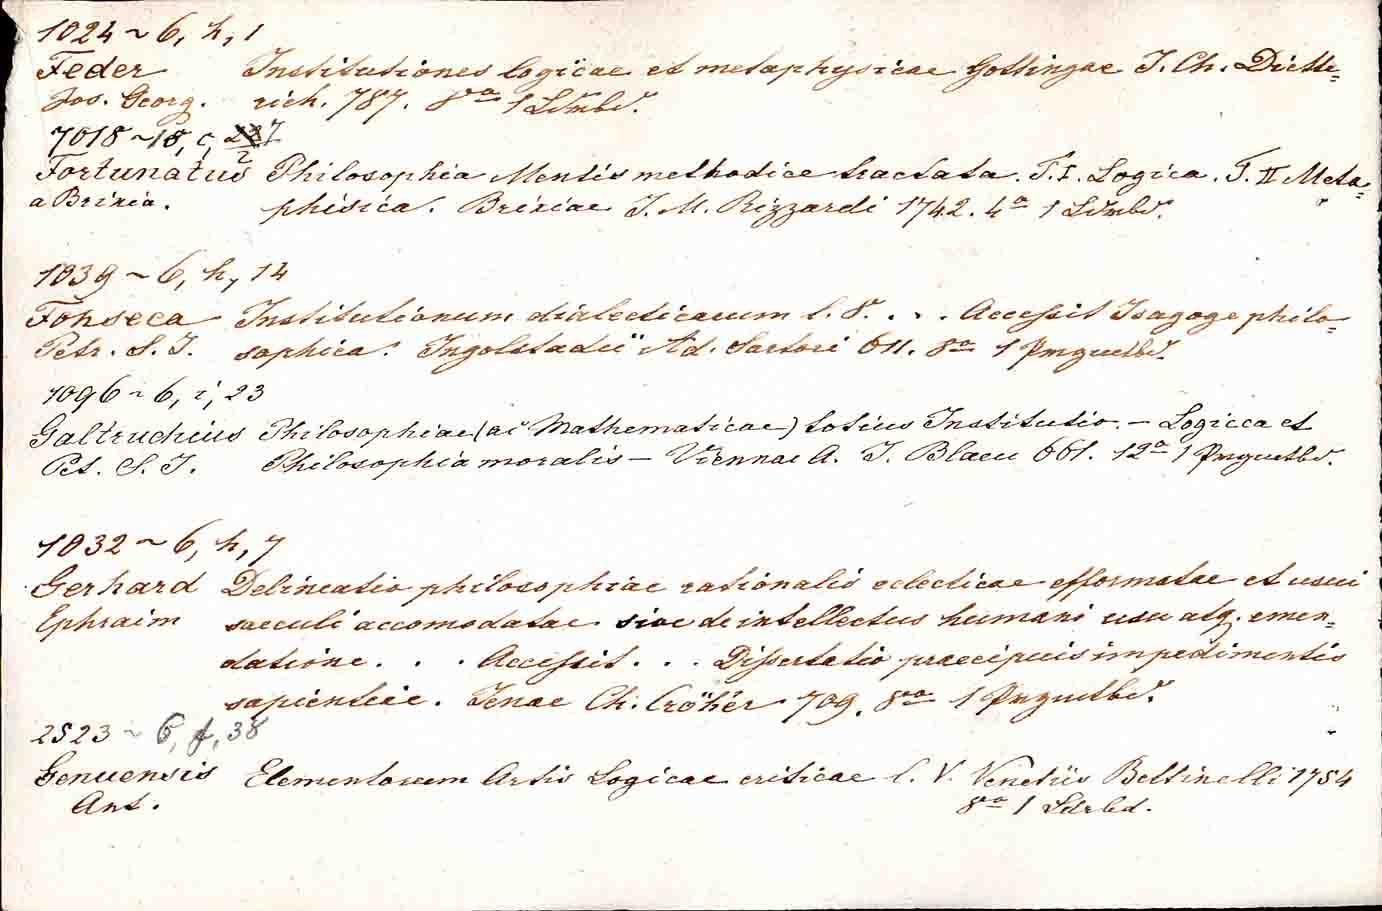 1024 ~ 6, h, 1
Feder Institutiones logicae et metaphysicae Gottingae J. Ch. Diette=
Jos. Georg. rich. 787. 8va 1 Ldrnbd.
7018 ~ 18, c, 7/2
Fortunatus Philosophia Mentis methodice tractata. T. I. Logica. T. II Meta=
a Brixia. phisica. Brixiae J. M. Rizzardi 1742. 4a 1 Ldrnbd.
1039 ~ 6, h, 14
Fonseca Institutionum dialecticarum l. 8. . . . Accessit Isagoge philo=
Petr. S. J. sophica. Ingolstadii Ad. Sartori 611. 8a 1 Prgmtbd.
1096 ~ 6, i, 23
Galtruchius Philosophiae (ac Mathematicae) totius Institutio. – Logica et
Pet. S. J. Philosophia moralis – Viennae A. J. Blaeu 661. 12a 1 Prgmtbd.
1032 ~ 6, h, 7
Gerhard Delineatio philosophiae rationalis eclecticae efformatae et usui
Ephraim saeculi accomodatae sive de intellectus humani usu atq. emen=
datione. . . . Accessit . . . Dissertatio praecipuis impedimentis
sapientiae. Jenae Ch. Cröker 709. 8va 1 Prgmtbd.
2523 ~ 6, f, 38
Genuensis Elementorum Artis Logicae criticae l. V. Venetiis Bettinelli 1754
Ant. 8va 1 Ldrbd.